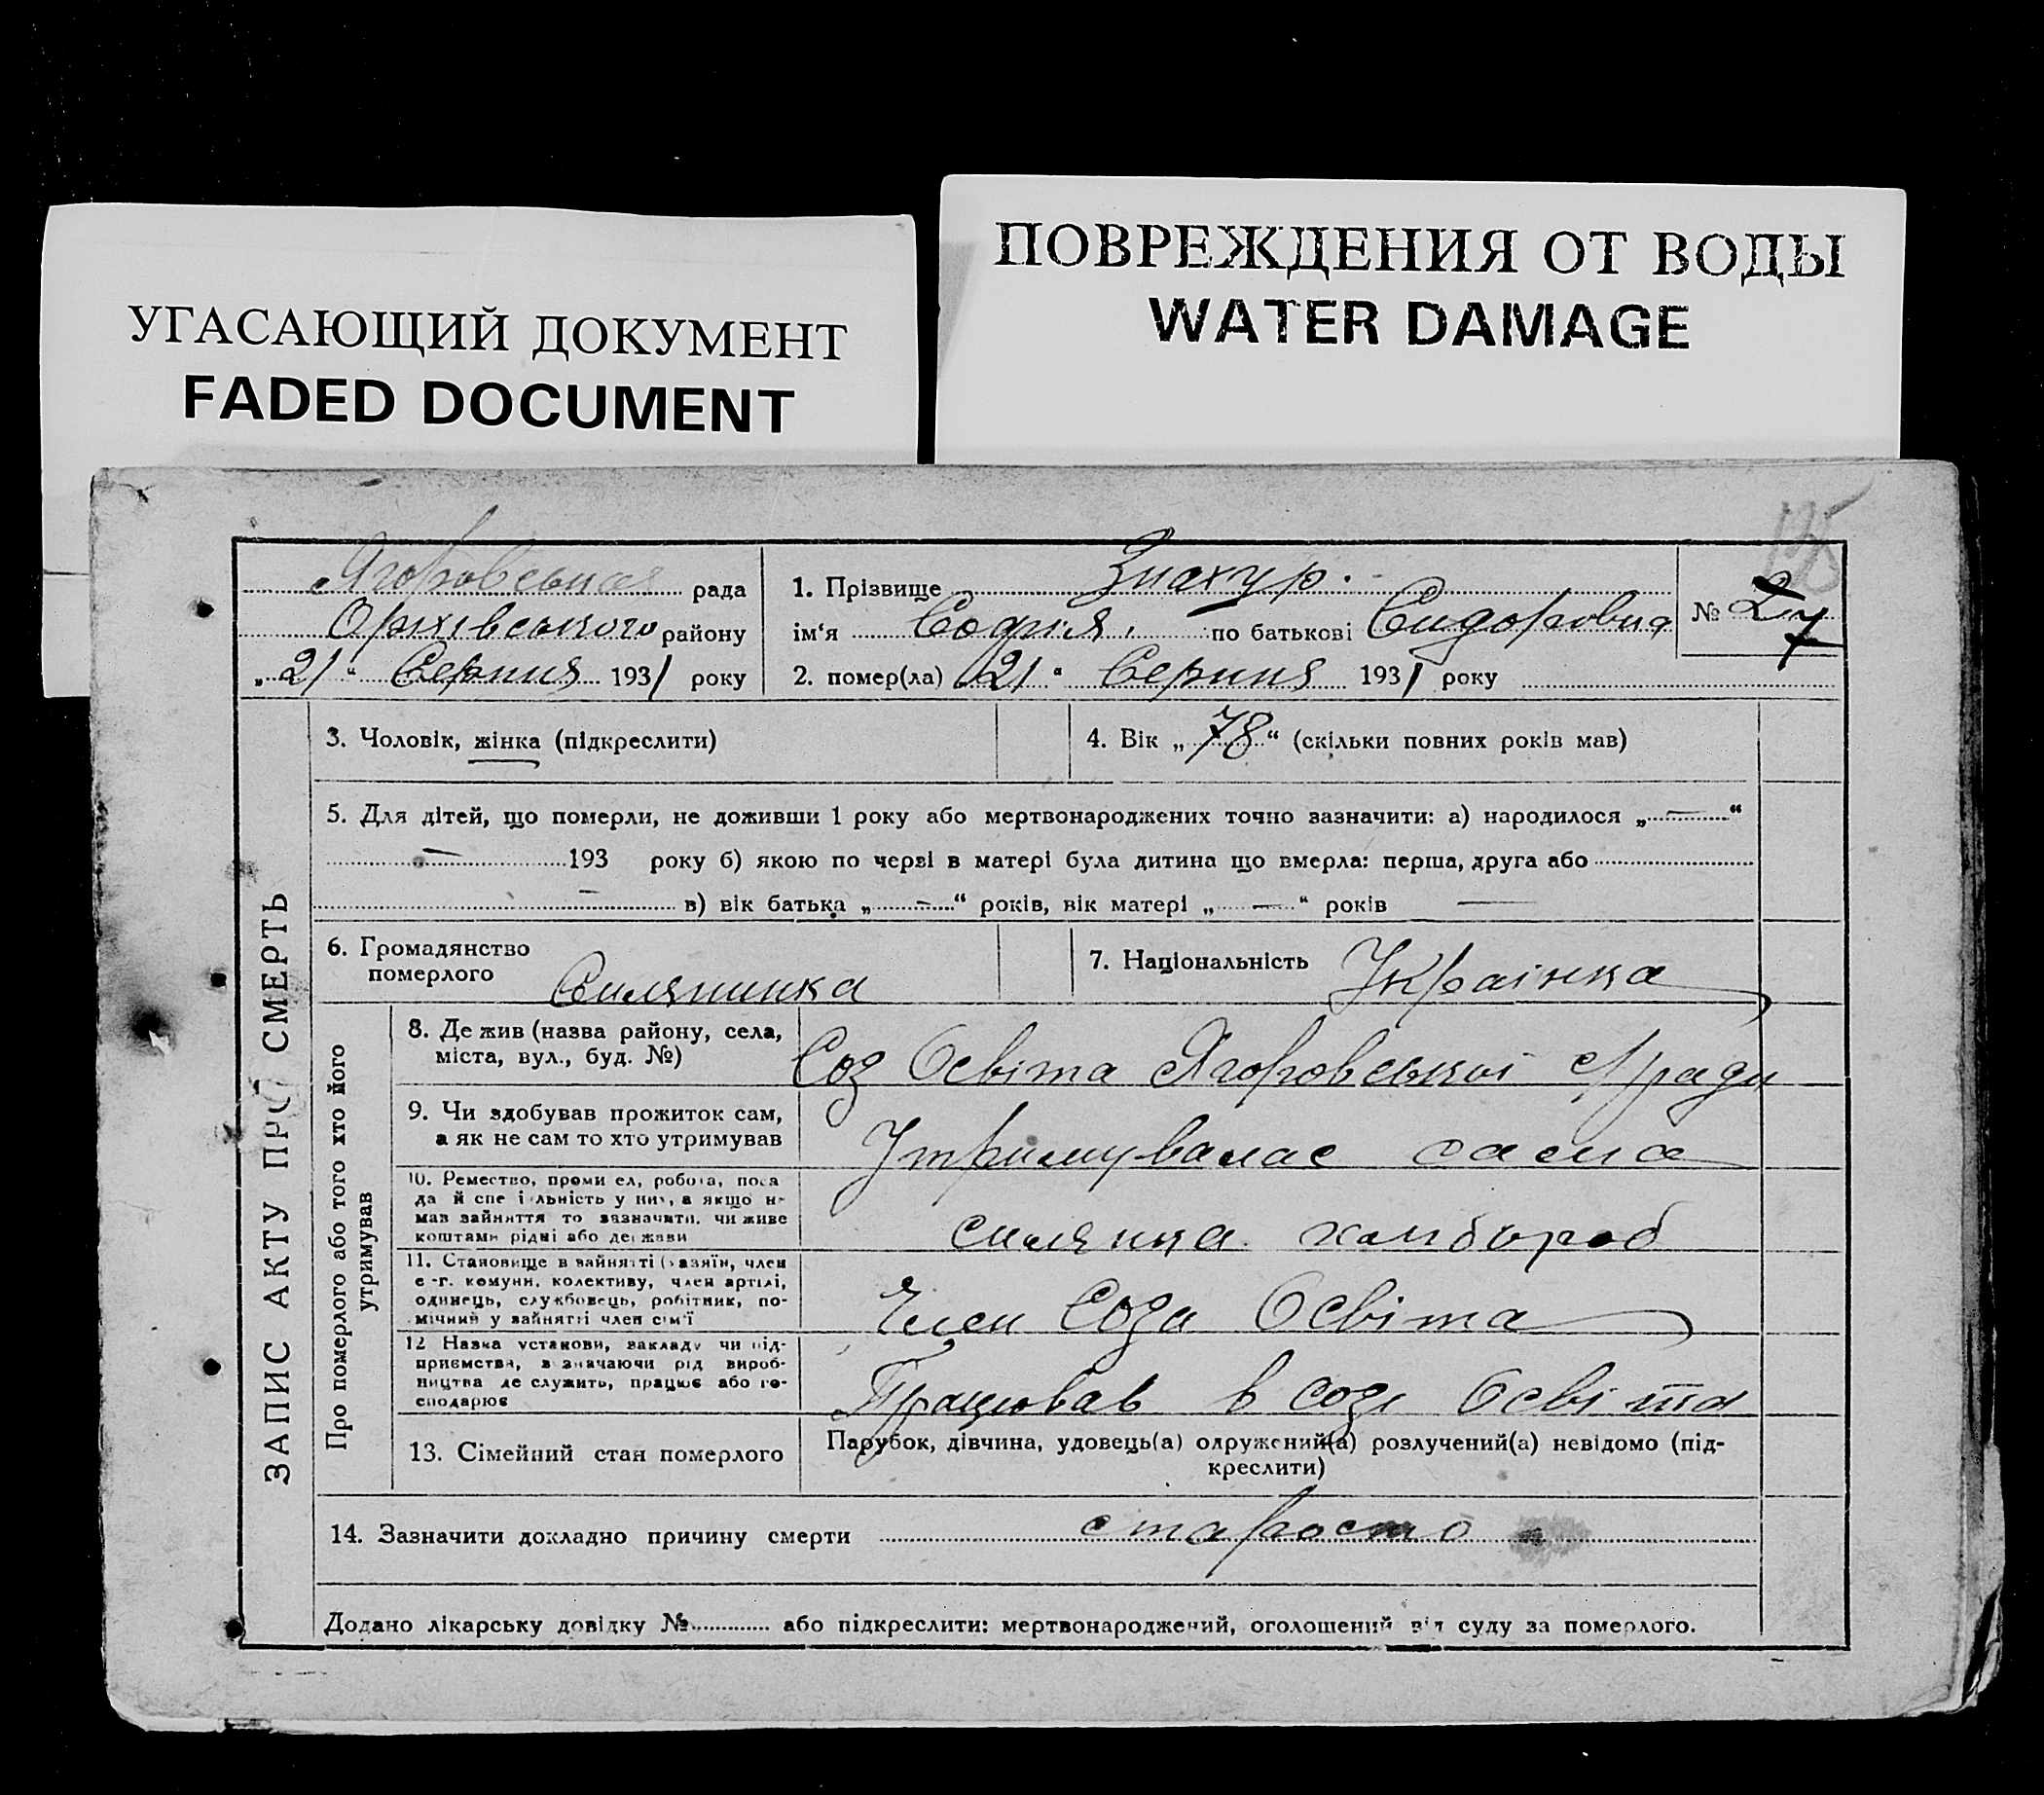 ПОВРЕЖДЕНИЯ ОТ ВОДЫ
WATER DAMAGE
УГАСАЮЩИЙ ДОКУМЕНТ
FADED DOCUMENT
Ягоровська рада
Оріхівського району
„21“ Серпня 1931 року
1. Прізвище Знахур.
ім‘я Софія, по батькові Сидоровна
2. помер(ла) „21“ Серпня 1931 року
№ 27
ЗАПИС АКТУ ПРО СМЕРТЬ
3. Чоловік, жінка (підкреслити)
4. Вік „78“ (скільки повних років мав)
5. Для дітей, що померли, не доживши 1 року або мертвонароджених точно зазначити: а) народилося „—“
— 193 року б) якою по черзі в матері була дитина що вмерла: перша, друга або
— в) вік батька „—“ років, вік матері „—“ років —
6. Громадянство
померлого Силянинка
7. Національність Українка
Про померлого або того хто його
утримував
8. Де жив (назва району, села,
міста, вул., буд. №)
Соз Освіта Ягоровської с/ради
9. Чи здобував прожиток сам,
а як не сам то хто утримував
Утримувалас сама
10. Ремество, проми ел, робота, поса
да й спе і льність у них, а якщо н-
мав зайняття то зазначити, чи живе
коштами рідні або держави
силянка хліббороб
11. Становище в зайнятті (хазяїн, член
с-г. комуни, колективу, член артілі,
одинець, службовець, робітник, по-
мічний у зайнятті член сім'ї
Член Соза Освіта
12 Назва установи, закладу чи під-
приємства, зазначаючи рід вироб-
ництва де служить, працює або го-
сподарює
Працював в Созі Освіта
13. Сімейний стан померлого
Парубок, дівчина, удовець(а) одружений(а) розлучений(а) невідомо (під-
креслити)
14. Зазначити докладно причину смерти старость
Додано лікарську довідку № або підкреслити: мертвонароджений, оголошений від суду за померлого.